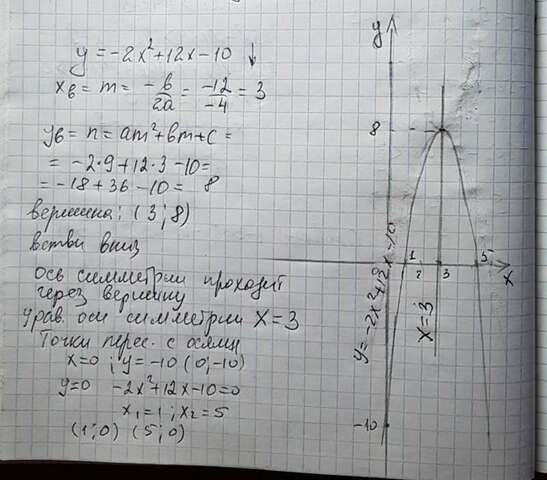 y = -2x² + 12x - 10 ↓
xв = m = -b/2a = -12/-4 = 3
yв = n = am² + bm + c =
= -2·9 + 12·3 - 10 =
= -18 + 36 - 10 = 8
вершина: (3; 8)
ветви вниз
ось симметрии проходит
через вершину
урав. оси симметрии x = 3
Точки перес. с осями
x=0 ; y = -10 (0; -10)
y=0 -2x² + 12x - 10 = 0
x₁ = 1 ; x₂ = 5
(1; 0) (5; 0)
y
8
1 2 3 5
x
y = -2x² + 12x - 10
x = 3
-10